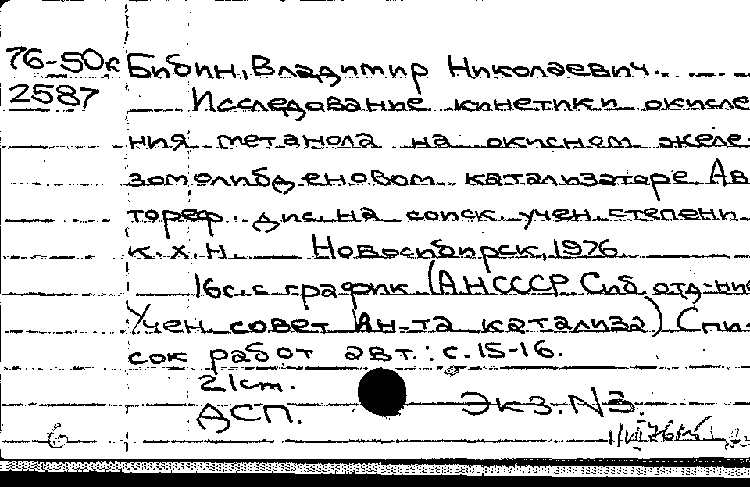 76-50к Бибин, Владимир Николаевич.
2587 Исследование кинетики окисле-
ния метанола на окисном желе-
зомолибденовом катализаторе Ав-
тореф. дис. на соиск. учен. степени
к.х.н. Новосибирск, 1976
16с. с график. (АН СССР. Сиб. отд-ние
Учен. совет Ин-та катализа) Спи-
сок работ авт.: с. 15-16.
21см.
ДСП. Экз. N3.
6